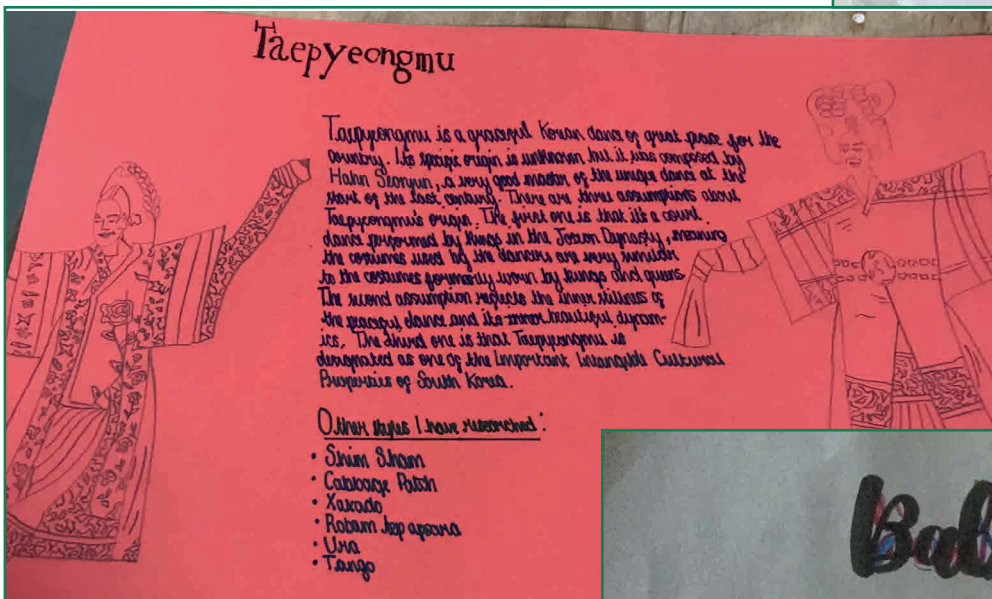 Taepyeongmu
Taepyeongmu is a graceful Korean dance of great peace for the
country. Its specific origin is unknown but it was composed by
Hahn Seongjun, a very good master of the unique dance at the
start of the last century. There are three assumptions about
Taepyeongmu's origin. The first one is that it's a court
dance performed by kings in the Joseon Dynasty, meaning
the costumes used by the dancers are very similar
to the costumes formerly worn by kings and queens.
The second assumption reflects the inner stillness of
the peaceful dance and its beautiful dynam-
ics. The third one is that Taepyeongmu is
designated as one of the Important Intangible Cultural
Properties of South Korea.
Other styles I have researched:
• Shim Sham
• Cabbage Patch
• Xaxado
• Robam tep apsara
• Ura
• Tango
Bal